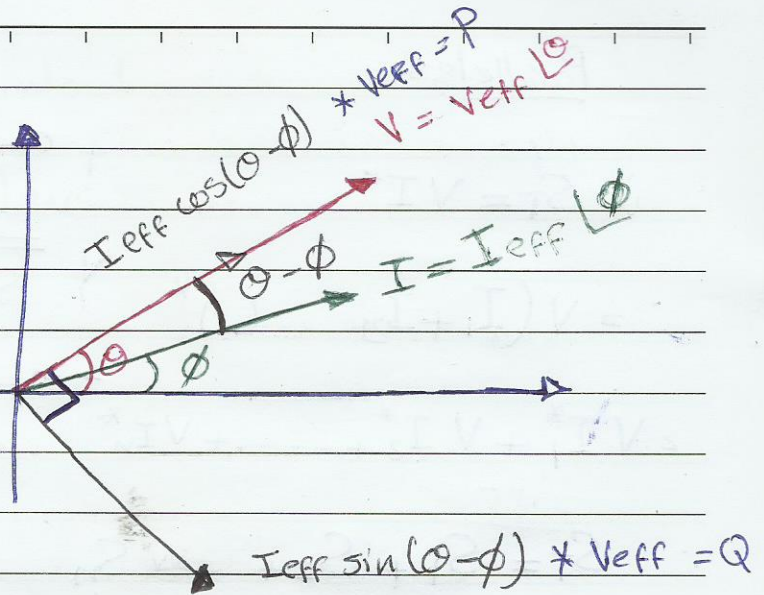 I eff cos(θ-ϕ) * Veff = P
V = Veff ∠θ
I = I eff ∠ϕ
θ-ϕ
θ
ϕ
I eff sin(θ-ϕ) * Veff = Q